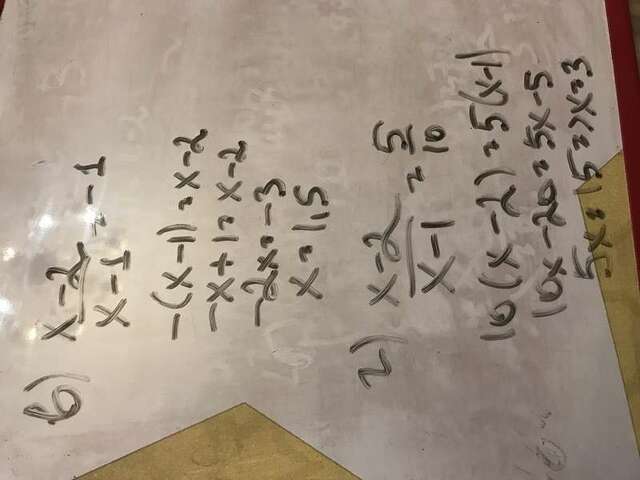 б) x-2/x-1 = -1
-(x-1) = x-2
-x+1 = x-2
-2x = -3
x = 1,5
2) x-2/x-1 = 5/10
10(x-2) = 5(x-1)
10x-20 = 5x-5
5x = 15 => x = 3